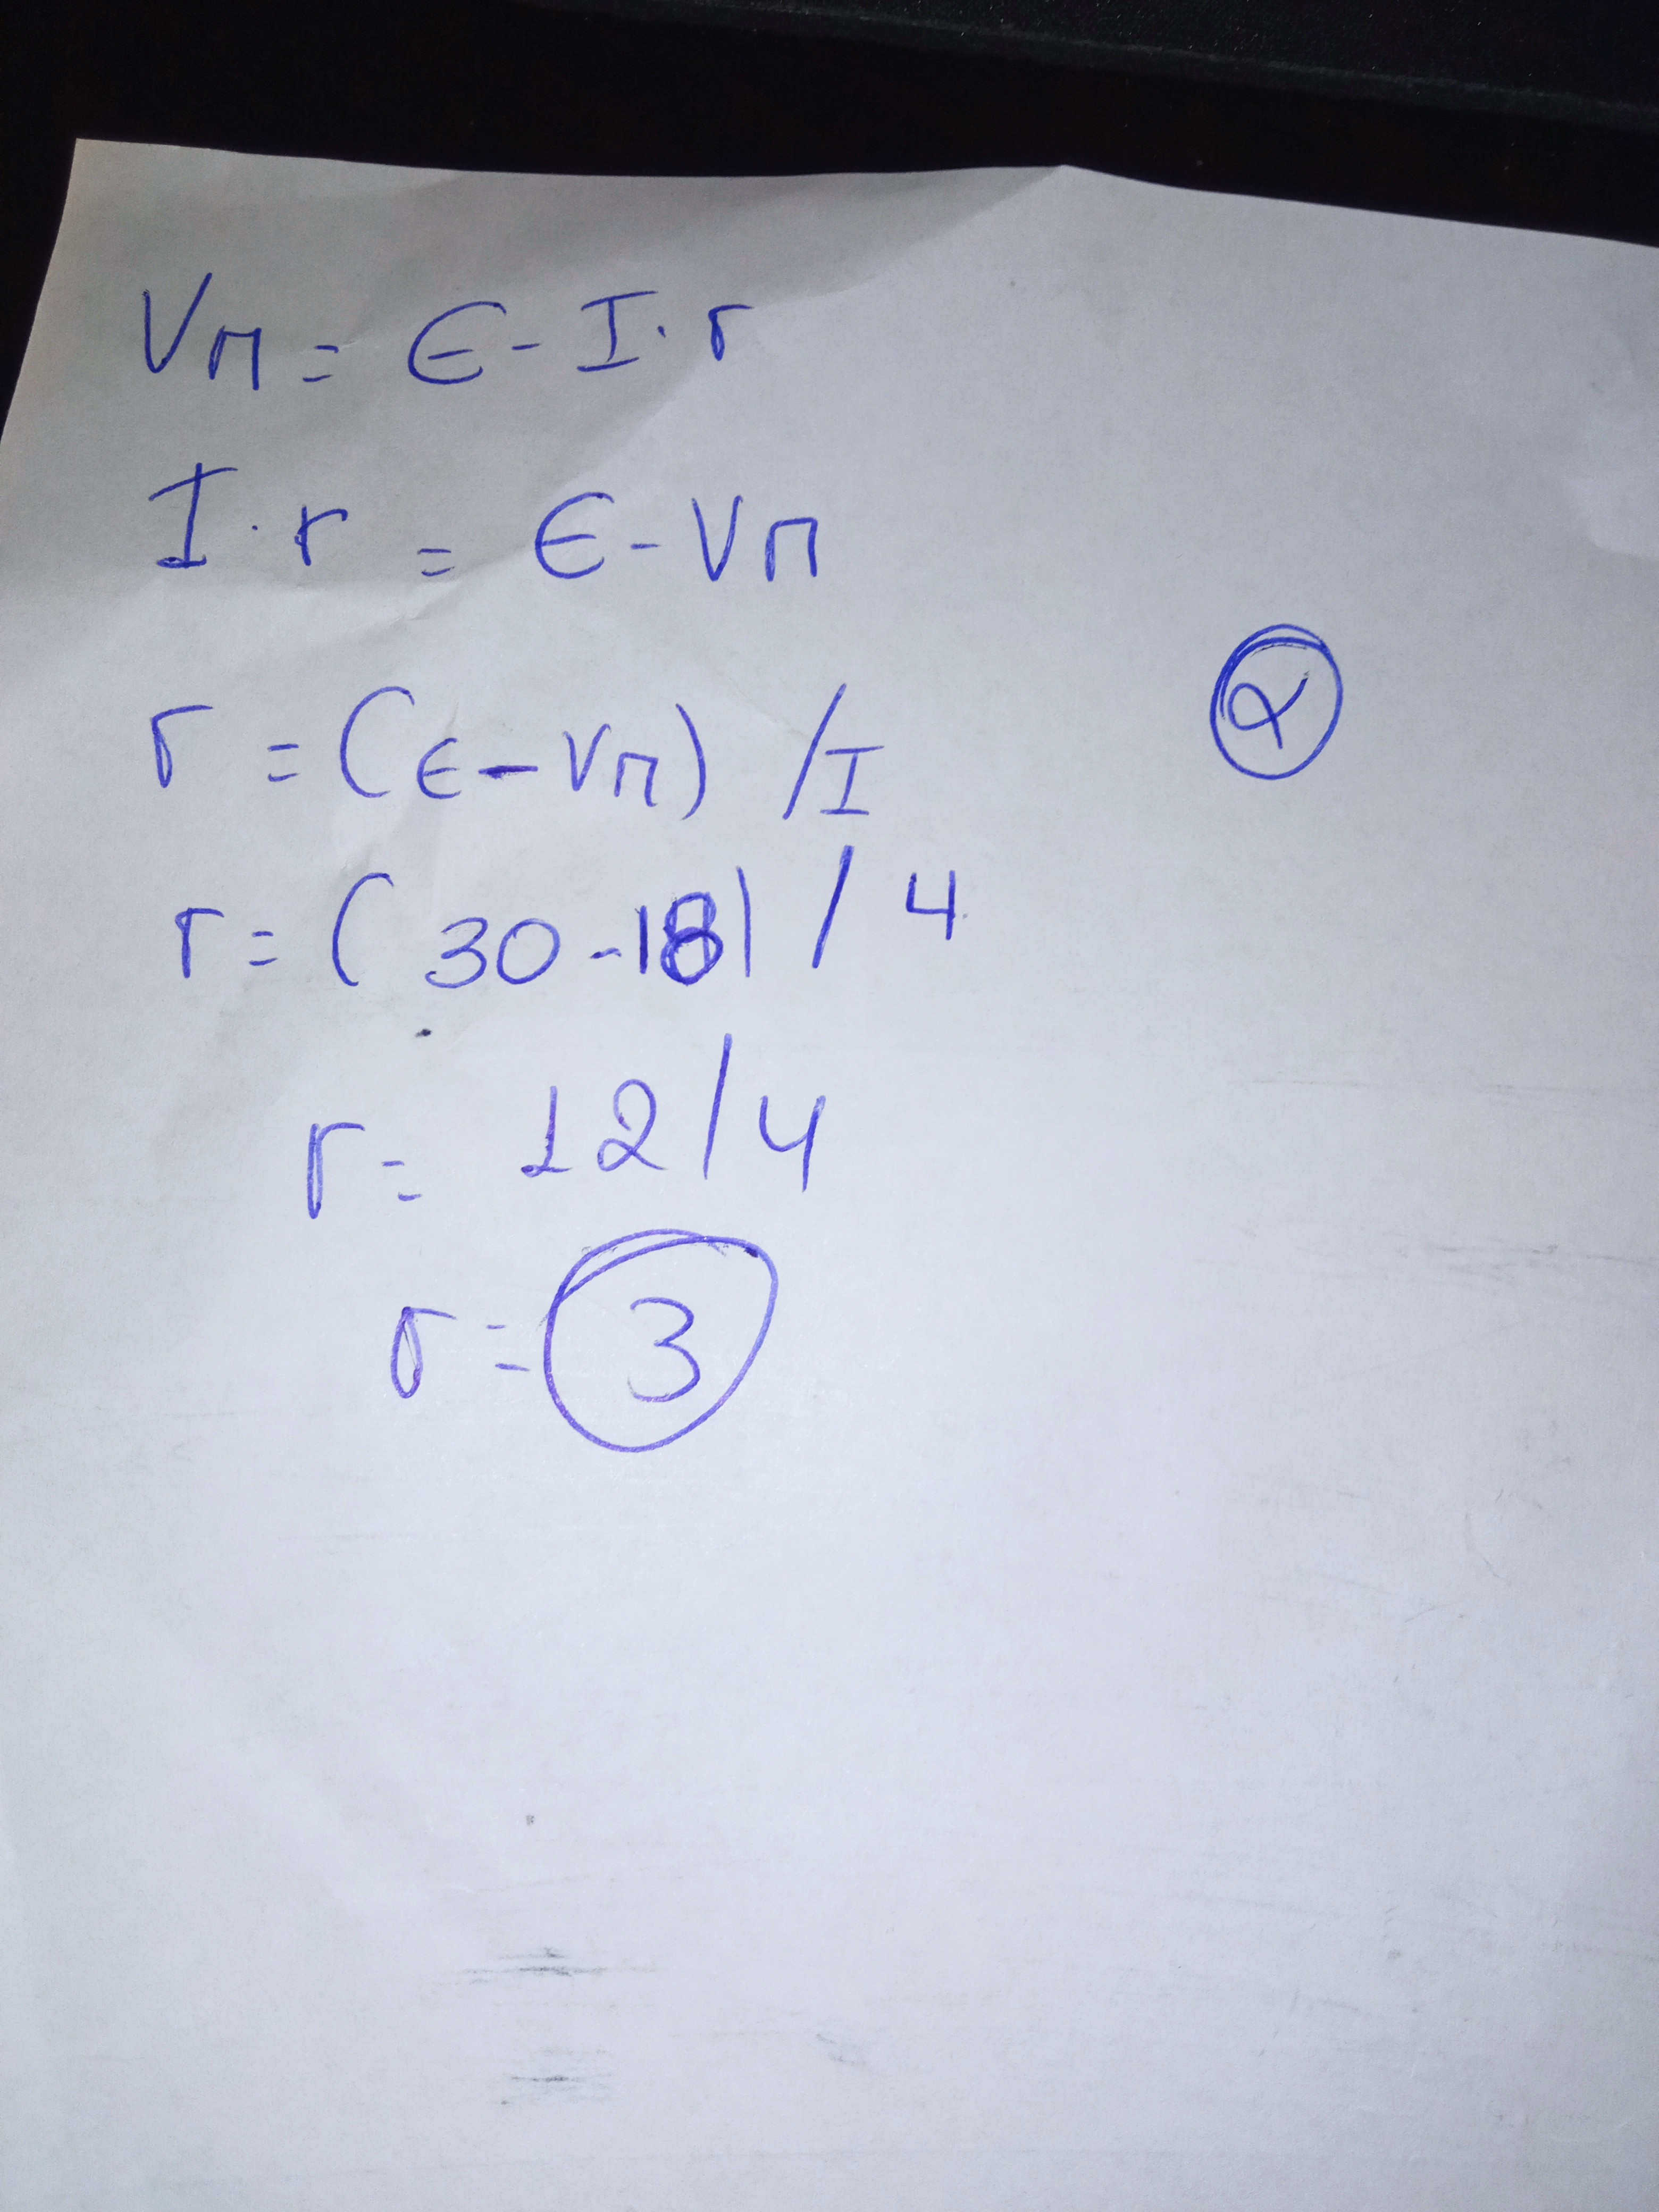 Vπ = ϵ - I · r
I · r = ϵ - Vπ
r = (ϵ - Vπ) / I
α
r = (30 - 18) / 4
r = 12 / 4
r = 3